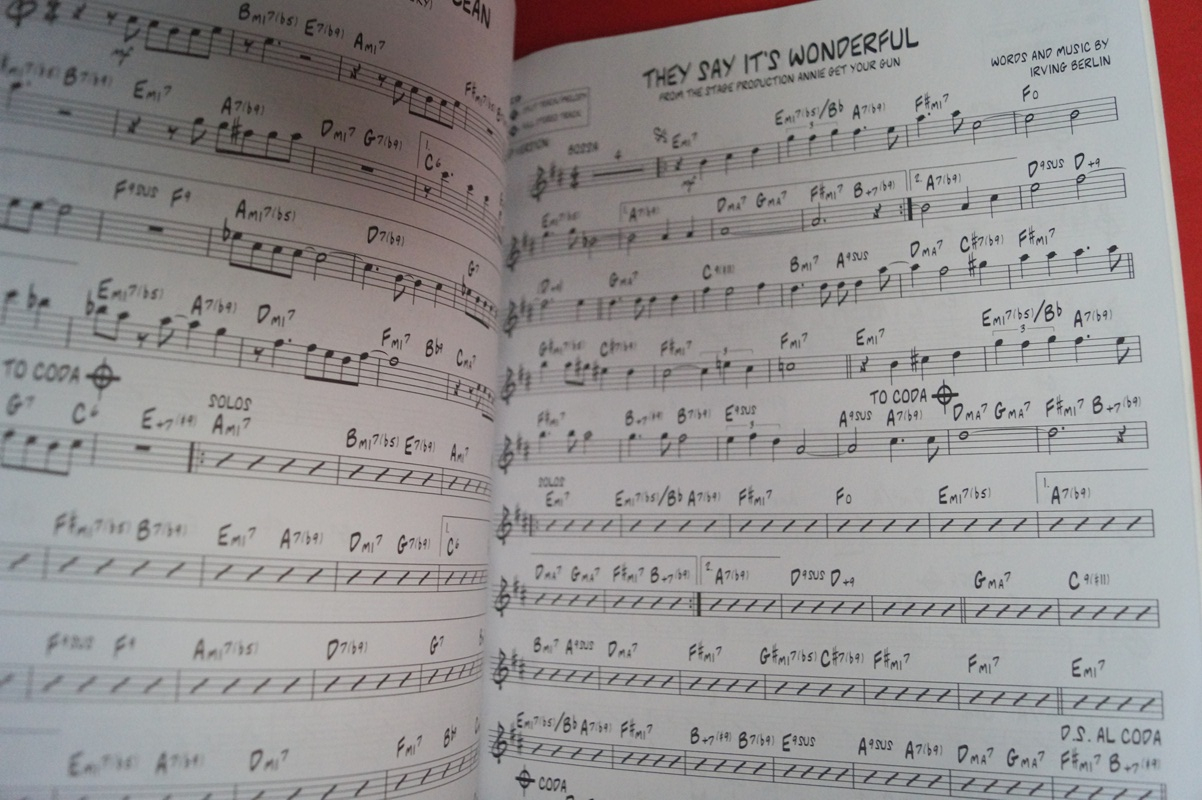 CEAN
Bmi7(b5) E7(b9) Ami7
B7(b9) Emi7 A7(b9) Dmi7 G7(b9) 1. C6
F9sus F9 Ami7(b5) D7(b9) G7
Emi7(b5) A7(b9) Dmi7 Fmi7 Bb9 Cma7
TO CODA
G7 C6 E+7(#9) SOLOS Ami7 Bmi7(b5) E7(b9) Ami7
F#mi7(b5) B7(b9) Emi7 A7(b9) Dmi7 G7(b9) 1. C6
F9sus F9 Ami7(b5) D7(b9) G7
Emi7(b5) A7(b9) Dmi7 Fmi7 Bb9
THEY SAY IT'S WONDERFUL
FROM THE STAGE PRODUCTION ANNIE GET YOUR GUN
WORDS AND MUSIC BY
IRVING BERLIN
BOSSA 4 Emi7 Emi7(b5)/Bb A7(b9) F#mi7 Fo
mp 3
Emi7(b5) 1. A7(b9) Dma7 Gma7 F#mi7 B+7(b9) 2. A7(b9) D9sus D+9
(D+9) Gma7 C9(#11) Bmi7 A9sus Dma7 C#7(b9) F#mi7
G#mi7(b5) C#7(b9) F#mi7 3 Fmi7 Emi7 Emi7(b5)/Bb 3 A7(b9)
TO CODA
F#mi7 B+7(#9) B7(b9) E9sus 3 A9sus A7(b9) Dma7 Gma7 F#mi7 B+7(b9)
SOLOS
Emi7 Emi7(b5)/Bb A7(b9) F#mi7 Fo Emi7(b5) 1. A7(b9)
Dma7 Gma7 F#mi7 B+7(b9) 2. A7(b9) D9sus D+9 Gma7 C9(#11)
Bmi7 A9sus Dma7 F#mi7 G#mi7(b5) C#7(b9) F#mi7 Fmi7 Emi7
D.S. AL CODA
Emi7(b5)/Bb A7(b9) F#mi7 B+7(#9) B7(b9) E9sus A9sus A7(b9) Dma7 Gma7 F#mi7 B+7(#9)
CODA